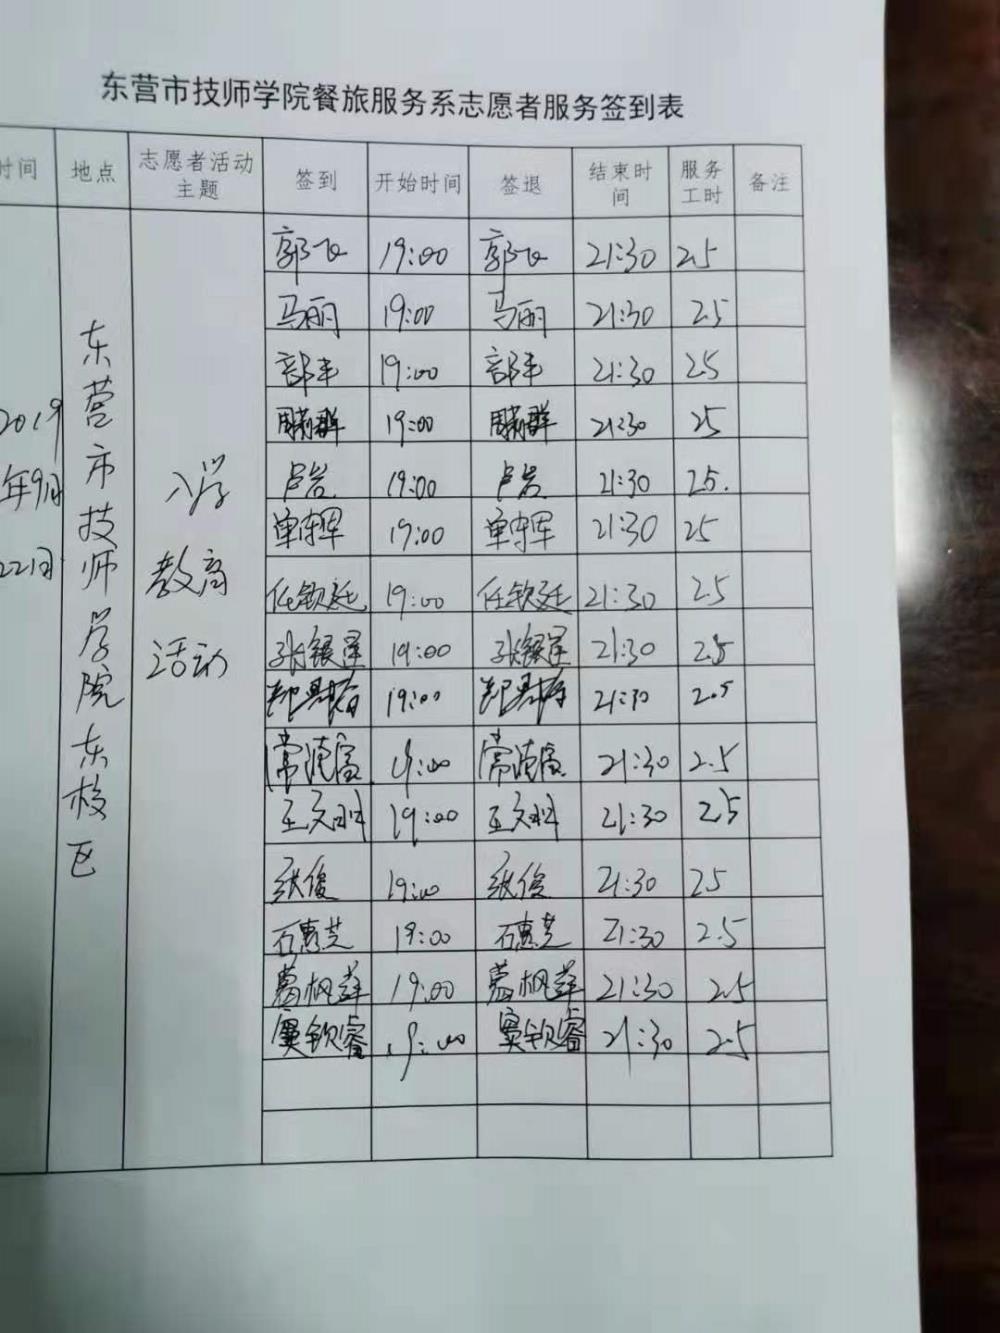 东营市技师学院餐旅服务系志愿者服务签到表
时间 地点 志愿者活动主题 签到 开始时间 签退 结束时间 服务工时 备注
2019年9月22日
东营市技师学院东校区
入学教育活动
郭飞 19:00 郭飞 21:30 2.5
马丽 19:00 马丽 21:30 2.5
19:00 21:30 2.5
19:00 21:30 2.5
卢岩 19:00 卢岩 21:30 2.5.
单存军 19:00 单存军 21:30 2.5
任钦廷 19:00 任钦廷 21:30 2.5
张银星 19:00 张银星 21:30 2.5
19:00 21:30 2.5
19:00 21:30 2.5
王文 19:00 王文 21:30 2.5
张俊 19:00 张俊 21:30 2.5
石惠芝 19:00 石惠芝 21:30 2.5
葛枫萍 19:00 葛枫萍 21:30 2.5
窦钦睿 19:00 窦钦睿 21:30 2.5